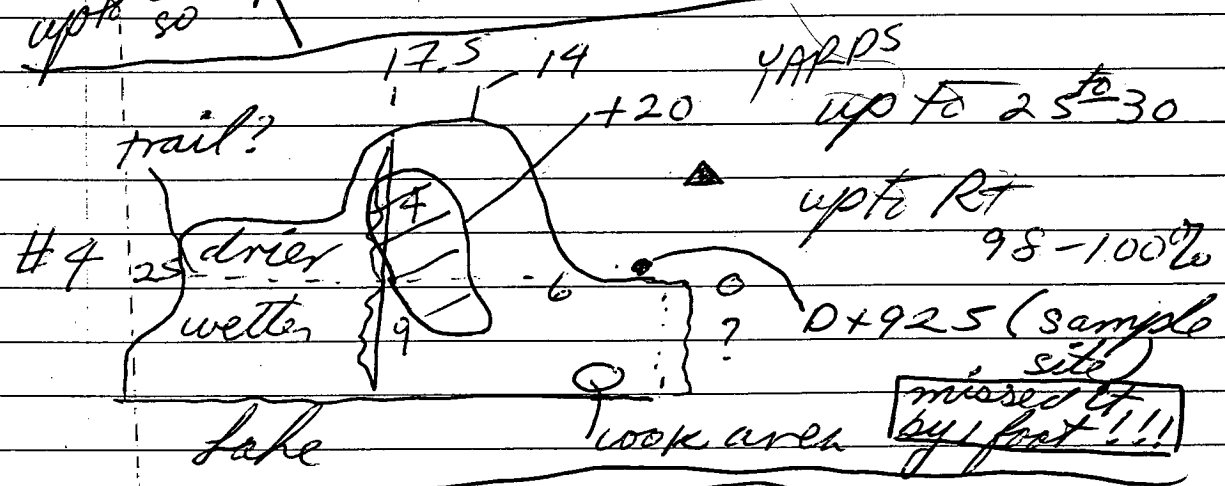 upto
so
17.5
14
YARDS
+20
up to 25 to 30
trail?
4
upto Rt
98-100%
#4
25
drier
6
0
wetter
9
?
D+925 (sample
site)
missed it
by 1 foot!!!
Lake
cook area